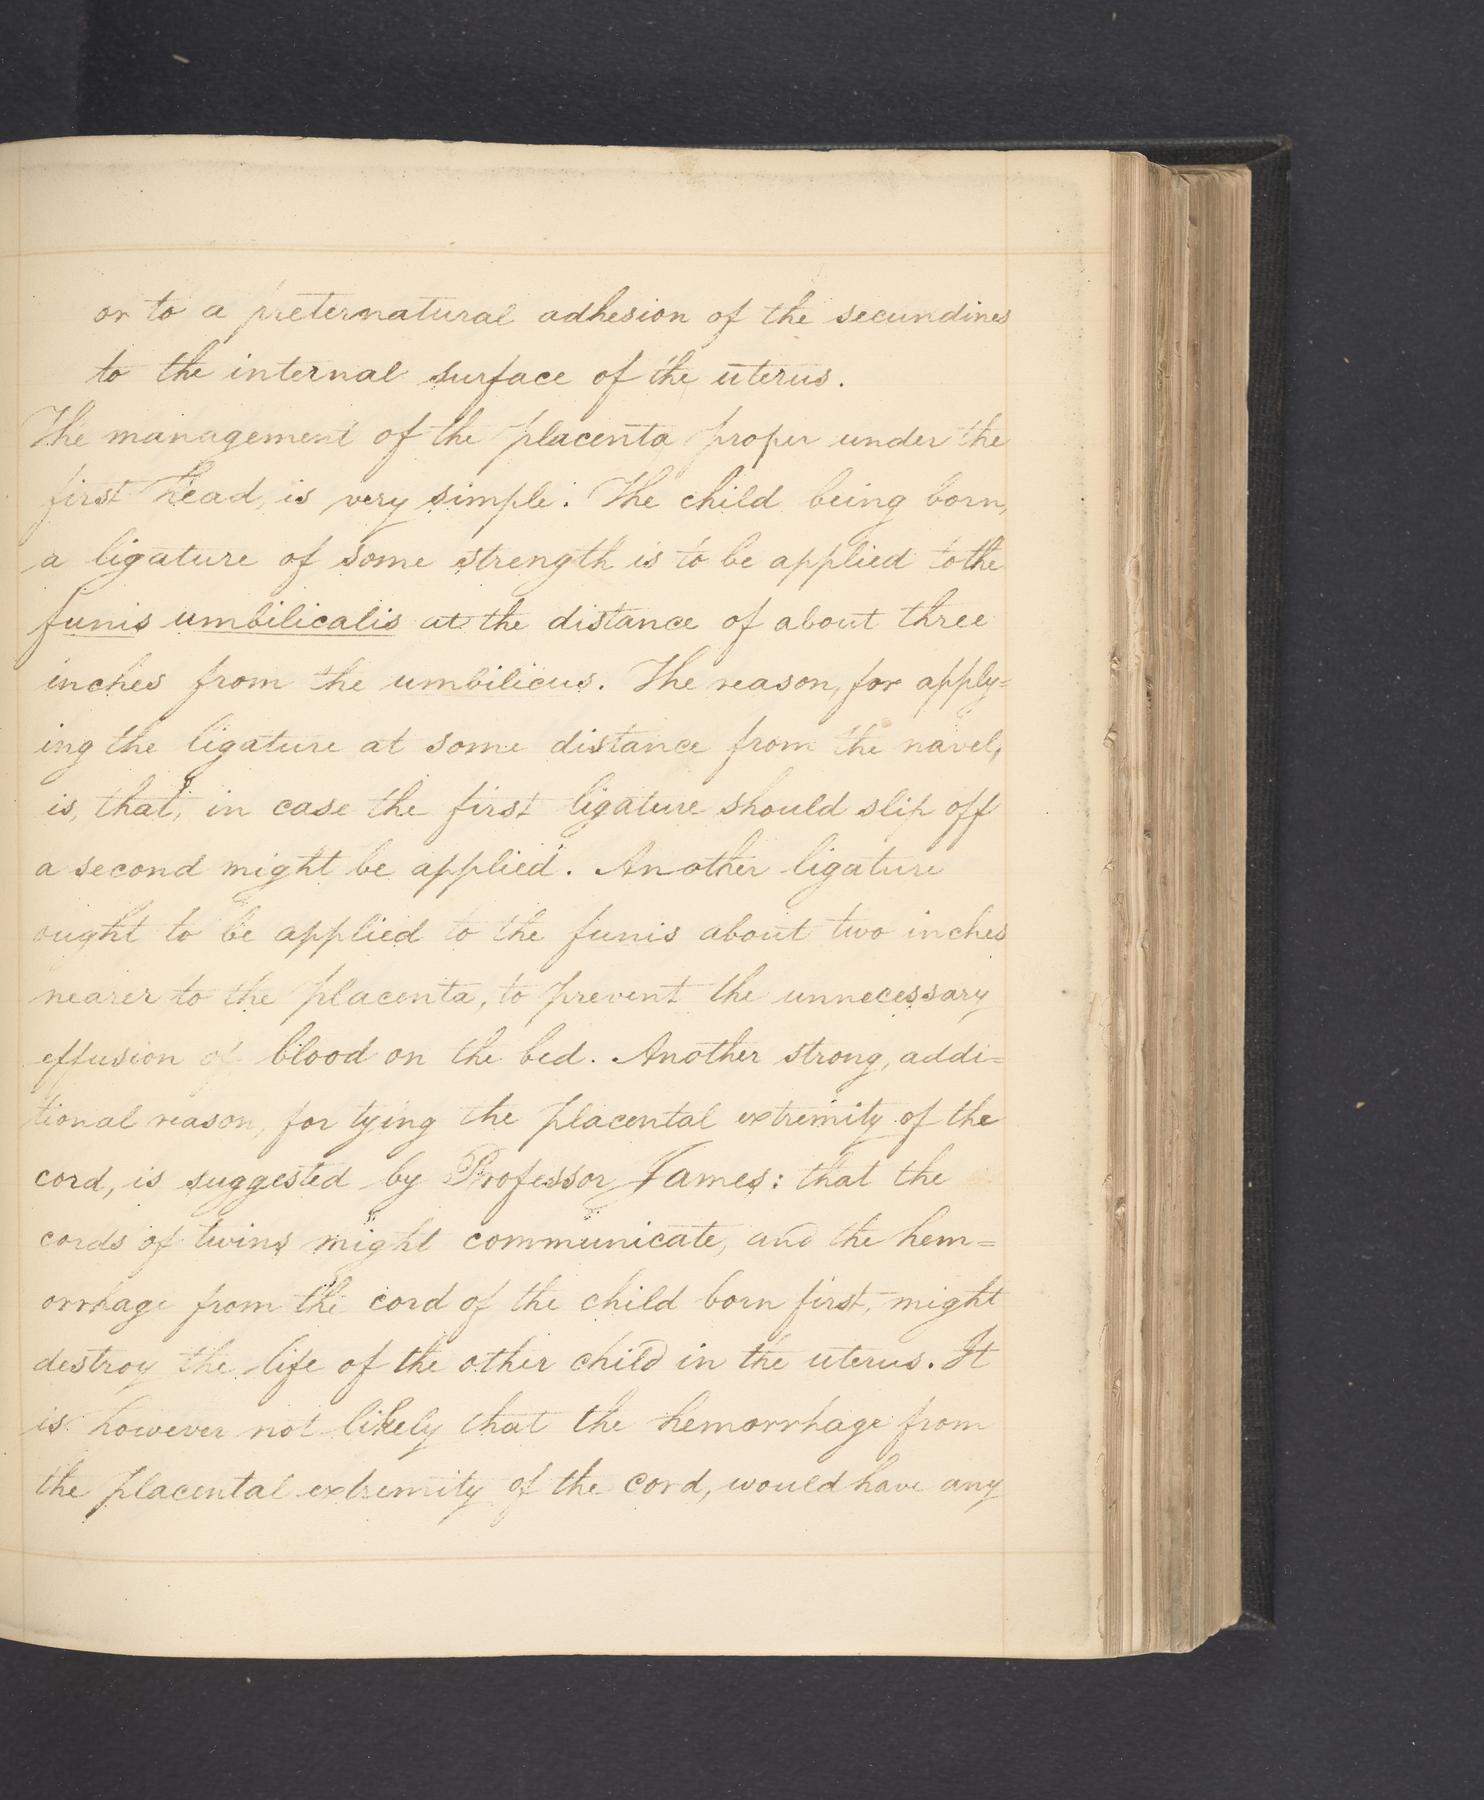 or to a preternatural adhesion of the secundines
to the internal surface of the uterus.
The management of the placenta proper under the
first head, is very simple. The child being born,
a ligature of some strength is to be applied to the
funis umbilicalis at the distance of about three
inches from the umbilicus. The reason, for apply=
ing the ligature at some distance from the navel,
is, that, in case the first ligature should slip off
a second might be applied. Another ligature
ought to be applied to the funis about two inches
nearer to the placenta, to prevent the unnecessary
effusion of blood on the bed. Another strong, addi=
tional reason, for tying the placental extremity of the
cord, is suggested by Professor James: that the
cords of twins might communicate, and the hem=
orrhage from the cord of the child born first, might
destroy the life of the other child in the uterus. It
is however not likely that the hemorrhage from
the placental extremity of the cord, would have any